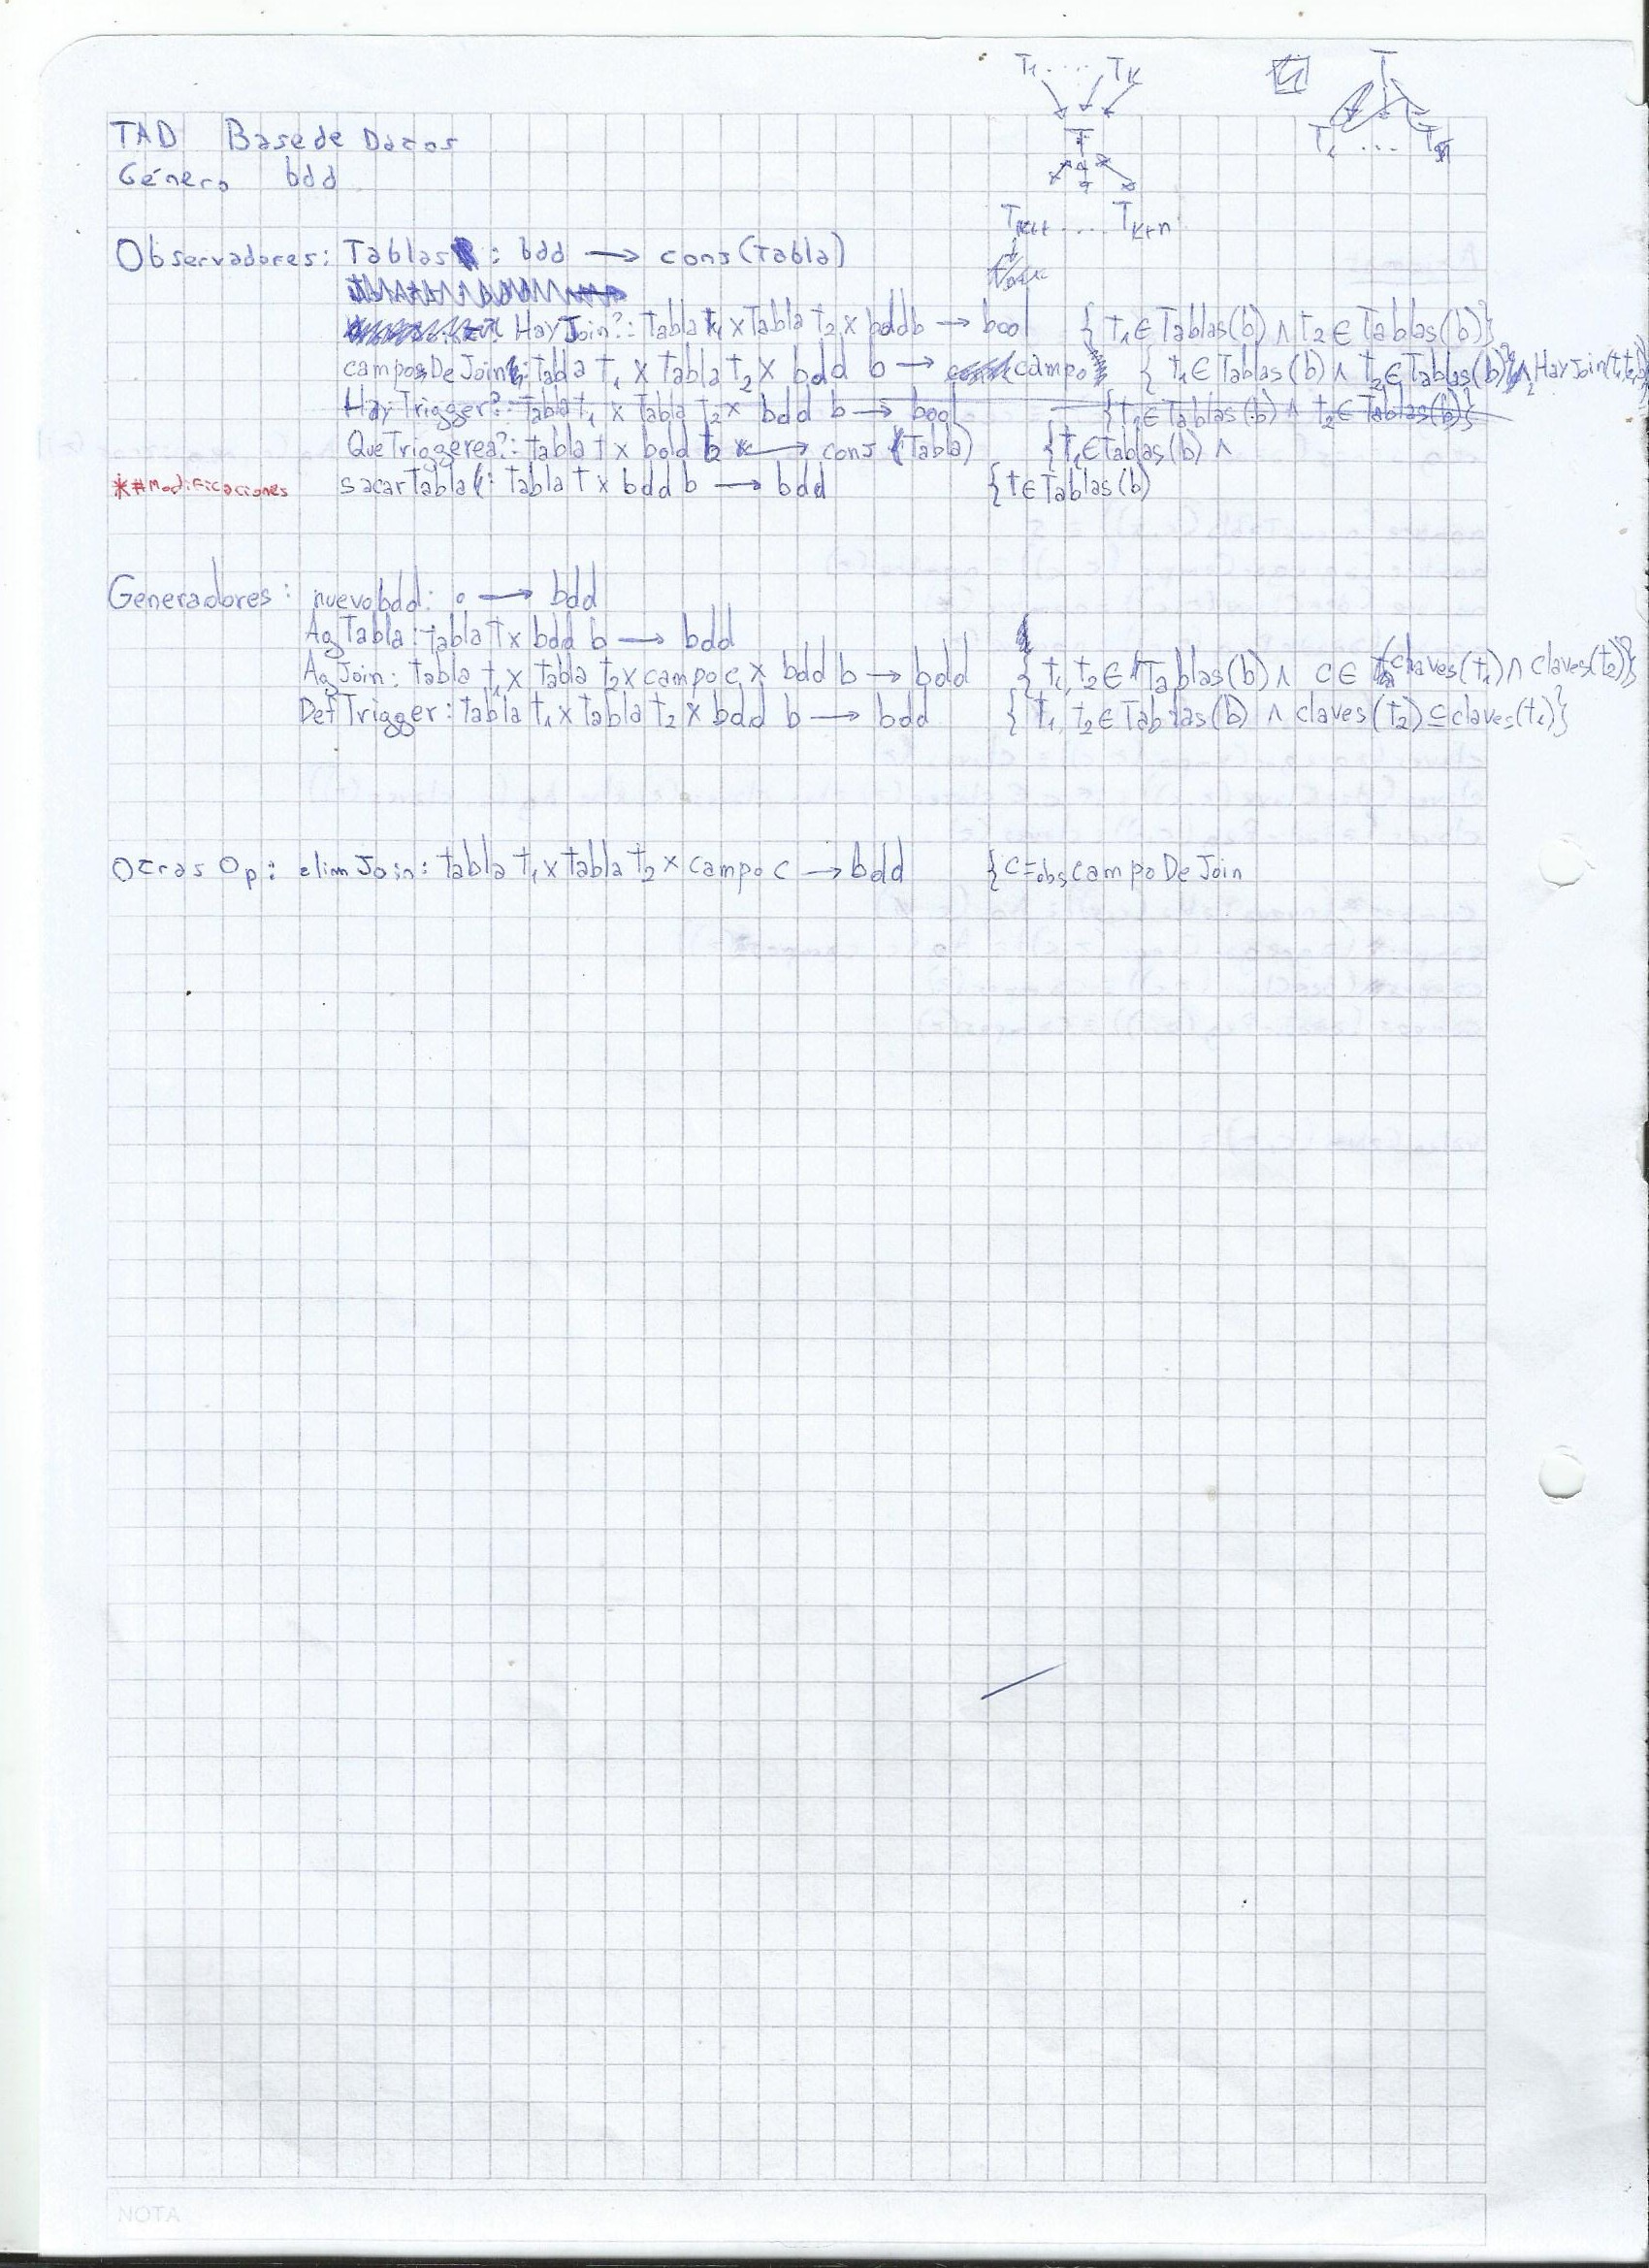 T₁ .... Tₖ
T
T₁ ... Tₙ
T
Tₖ₊₁ .... Tₖ₊ₙ
TAD Base de Datos
Género bdd
Observadores: Tablas : bdd → conj(Tabla)
HayJoin?: Tabla t₁ x Tabla t₂ x bdd b → bool { t₁ ∈ Tablas(b) ∧ t₂ ∈ Tablas(b)}
campoDeJoin: tabla t₁ x tabla t₂ x bdd b → campo { t₁ ∈ Tablas(b) ∧ t₂ ∈ Tablas(b) ∧ HayJoin(t₁,t₂,b)}
HayTrigger?: tabla t₁ x tabla t₂ x bdd b → bool {t₁ ∈ Tablas(b) ∧ t₂ ∈ Tablas(b)}
QueTriggerea?: tabla t x bdd b → conj (Tabla) {t₁ ∈ Tablas(b) ∧
*#Modificaciones sacarTabla: Tabla t x bdd b → bdd {t ∈ Tablas(b)
Generadores: nuevobdd: ∘ → bdd
AgTabla: tabla t x bdd b → bdd
AgJoin: tabla t₁ x tabla t₂ x campo c x bdd b → bdd { t₁, t₂ ∈ Tablas(b) ∧ c ∈ (claves(t₁) ∧ claves(t₂))}
DefTrigger: tabla t₁ x tabla t₂ x bdd b → bdd { t₁, t₂ ∈ Tablas(b) ∧ claves(t₂) ⊆ claves(t₁)}
Otras Op: elimJoin: tabla t₁ x tabla t₂ x campo c → bdd {c =obs campoDeJoin
NOTA